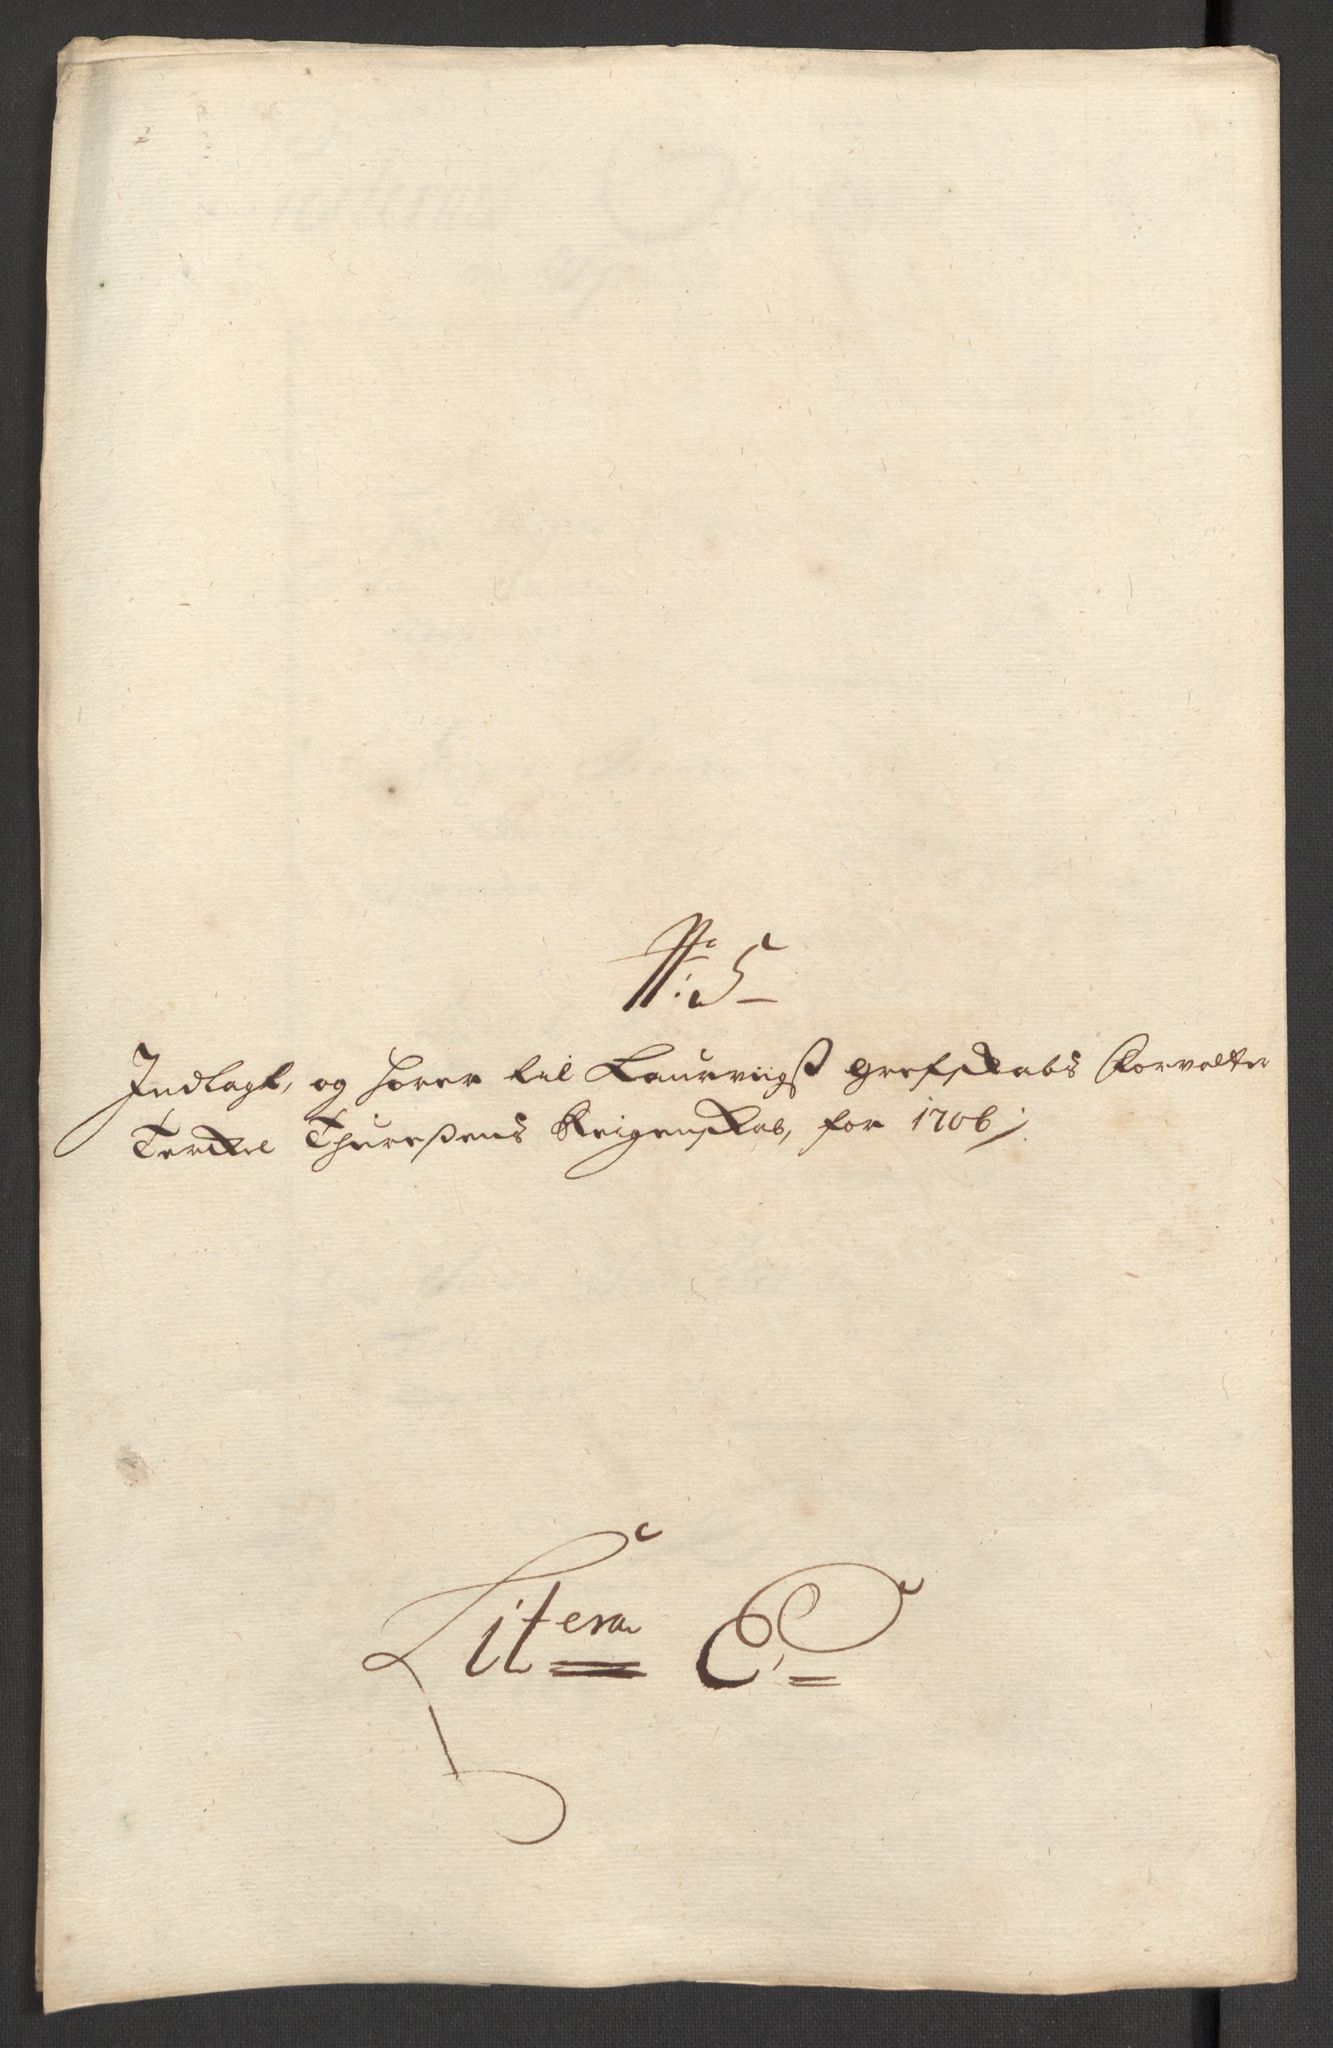 No: 5
Indlagt, og hører til Laurviigß grefskabs Forvalter
Terckel Thureßens Reigenskab, for 1706
Litera C